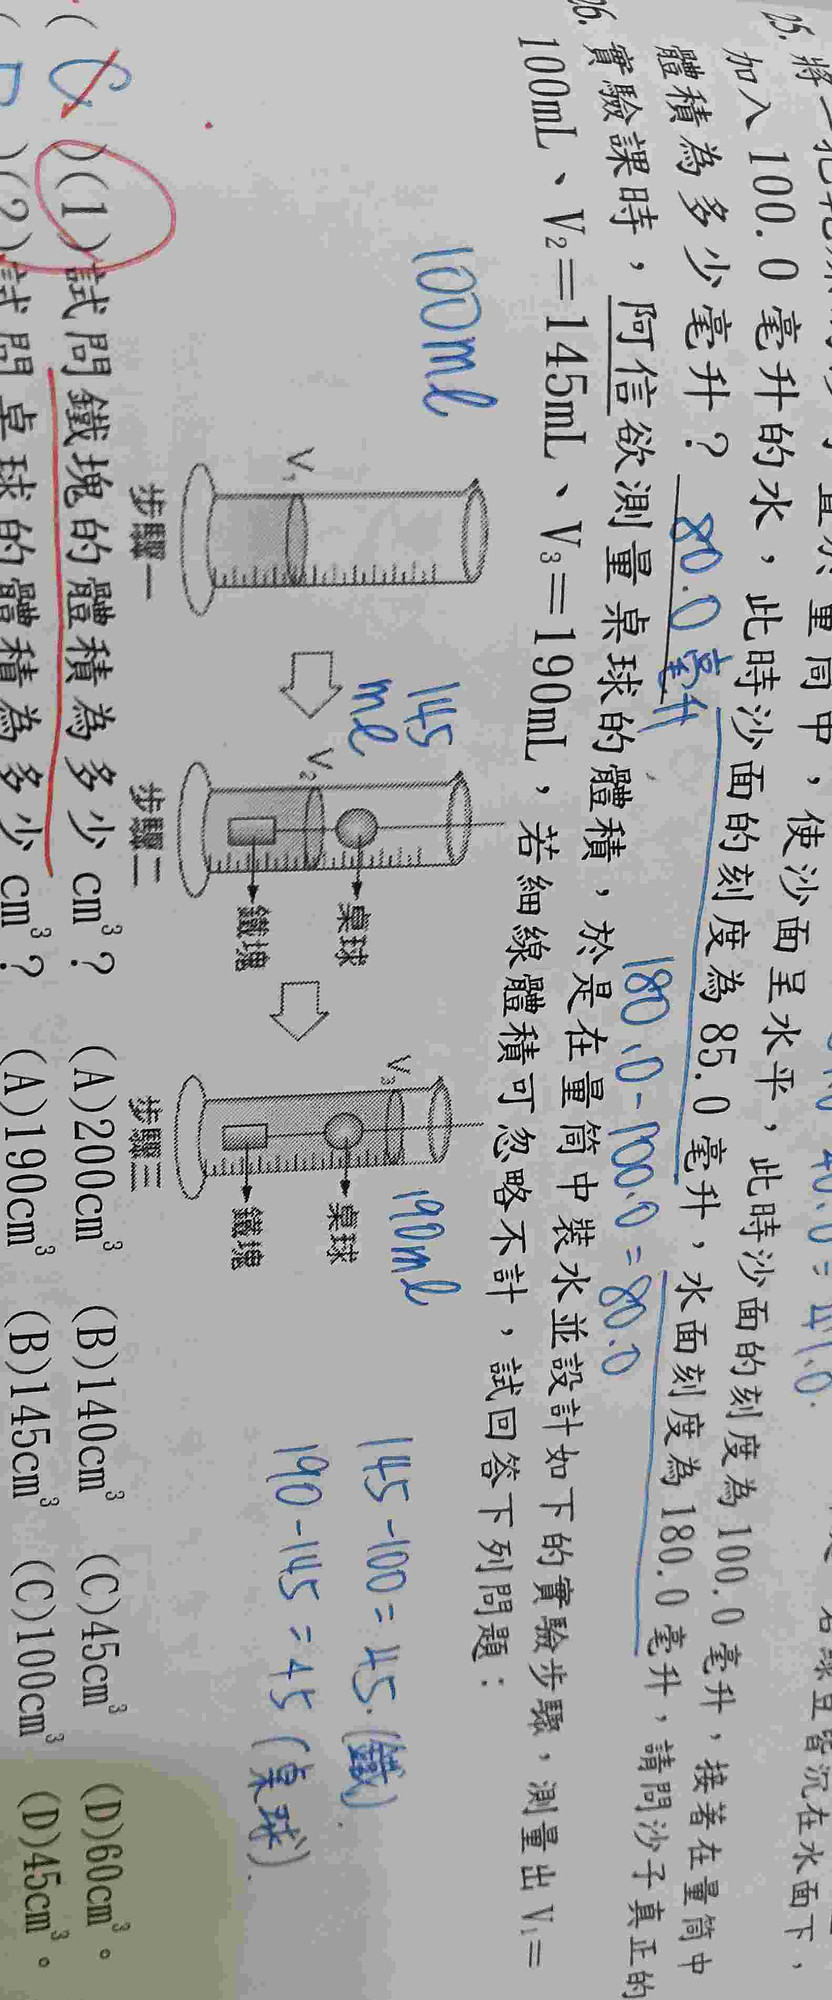 25. 將一把乾燥的沙子置於量筒中，使沙面呈水平，此時沙面的刻度為100.0毫升，接著在量筒中
加入100.0毫升的水，此時沙面的刻度為85.0毫升，水面刻度為180.0毫升，請問沙子真正的
體積為多少毫升？ 80.0毫升
180.0-100.0=80.0
26. 實驗課時，阿信欲測量桌球的體積，於是在量筒中裝水並設計如下的實驗步驟，測量出V₁＝
100mL、V₂＝145mL、V₃＝190mL，若細線體積可忽略不計，試回答下列問題：
100ml
145
ml
190ml
V₁
V₂
V₃
桌球
鐵塊
桌球
鐵塊
步驟一
步驟二
步驟三
145-100=45.(鐵)
190-145=45(桌球)
( C )(1)試問鐵塊的體積為多少cm³？ (A)200cm³ (B)140cm³ (C)45cm³ (D)60cm³。
( D )(2)試問桌球的體積為多少cm³？ (A)190cm³ (B)145cm³ (C)100cm³ (D)45cm³。